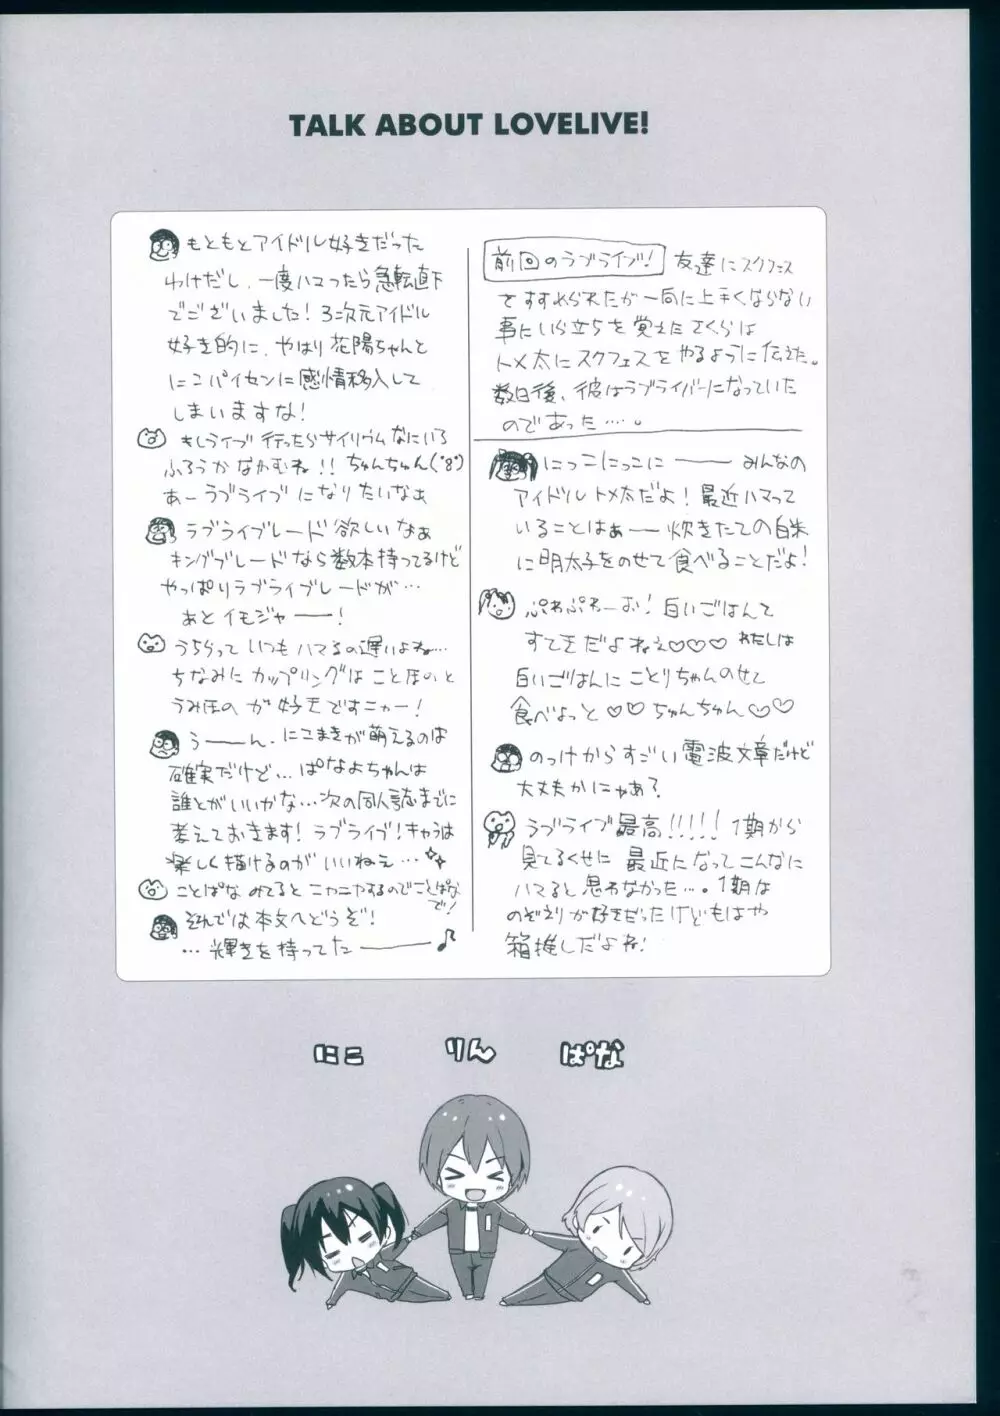 TALK ABOUT LOVELIVE!
前回のラブライブ! 友達にスクフェス
をすすめられたが一向に上手くならない
事にいら立ちを覚えたさくらは
トメ太にスクフェスをやるように伝えた。
数日後、彼はラブライバーになっていた
のであった‥‥。
にっこにっこに―― みんなの
アイドルトメ太だよ! 最近ハマって
いることはぁー 炊きたての白米
に明太子をのせて食べることだよ!
ぷわぷわーお! 白いごはんて
すてきだよねぇ♡♡♡ わたしは
白いごはんにことりちゃんのせて
食べよっと♡♡ちゅんちゅん♡♡
のっけからすごい電波文章だけど
大丈夫かにゃあ?
ラブライブ最高!!!!! 1期から
見てるくせに 最近になってこんなに
ハマると思わなかった…。1期は
のぞえりが好きだったけどもはや
箱推しだよね!
もともとアイドル好きだった
わけだし、一度ハマったら急転直下
でございました! 3次元アイドル
好き的に、やはり花陽ちゃんと
にこパイセンに感情移入して
しまいますな!
もしライブ行ったらサイリウムなにいろ
ふろうかなかむね!! ちゅんちゅん(°8°)
あーラブライブになりたいなぁ
ラブライブレード欲しいなぁ
キングブレードなら数本持ってるけど
やっぱりラブライブレードが…
あとイモジャー――!
うちらっていつもハマるの遅いよね…
ちなみにカップリングはことほのと
うみほのが好きですニャー!
うーーん、にこまきが萌えるのは
確実だけど…ぱなよちゃんは
誰とがいいかな…次の同人誌までに
考えておきます! ラブライブ!キャラは
楽しく描けるのがいいねぇ…
ことぱなみてるとニヤニヤするのでことぱな
で!
それでは本文へどうぞ!
…輝きを持ってた――♪
にこ りん ぱな